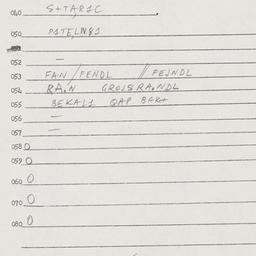 040 S+TAR1C
050 P1TELN81
052 —
053 FAN/FENDL // FEINDL
054 RA,N GROISRA,NDL
055 BEKAL1 QAP BAK+
056 —
057 —
058 0
059 0
060 0
070 0
080 0